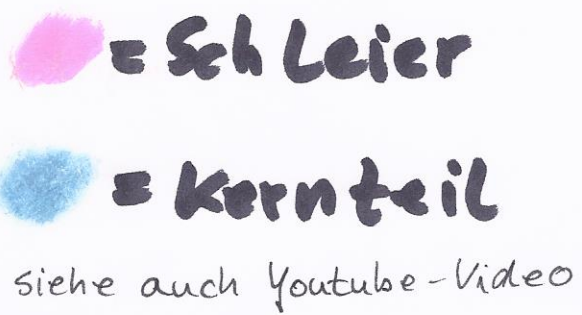 = Schleier
= Kernteil
siehe auch Youtube-Video